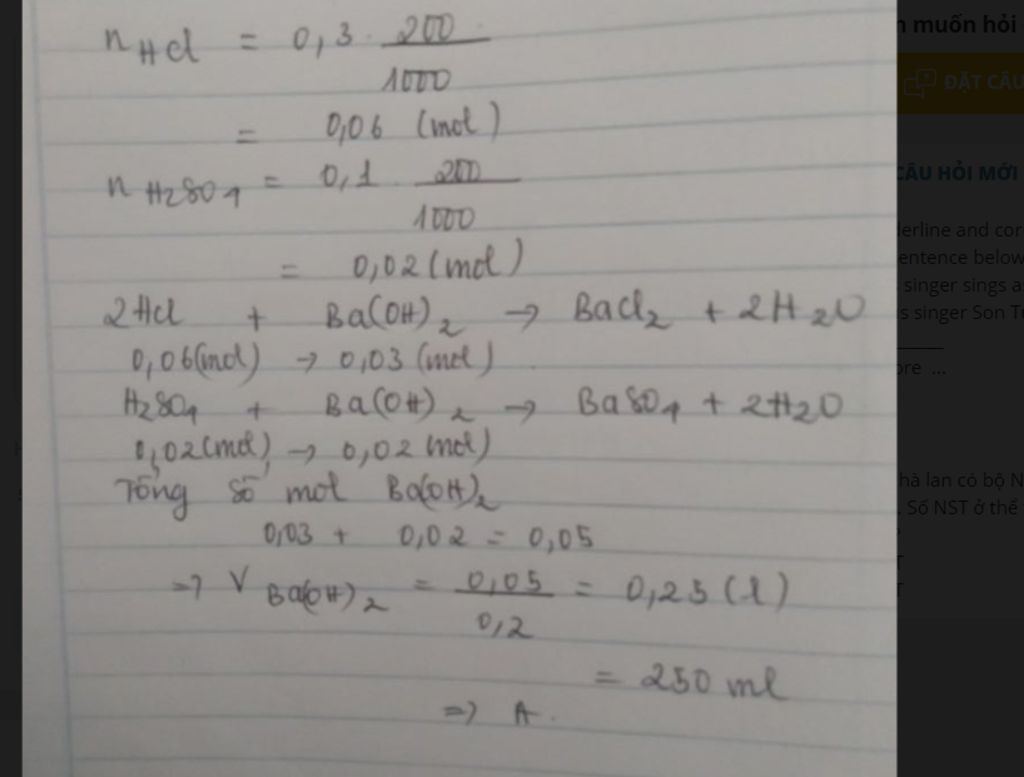 n HCl = 0,3 . 200
1000
= 0,06 (mol)
n H2SO4 = 0,1 . 200
1000
= 0,02 (mol)
2HCl + Ba(OH)2 → BaCl2 + 2H2O
0,06(mol) → 0,03 (mol)
H2SO4 + Ba(OH)2 → BaSO4 + 2H2O
0,02(mol) → 0,02 (mol)
Tổng số mol Ba(OH)2
0,03 + 0,02 = 0,05
=> V Ba(OH)2 = 0,05 = 0,25 (l)
0,2
= 250 ml
=> A.
muốn hỏi
ĐẶT CÂU
CÂU HỎI MỚI
erline and cor
entence below
singer sings a
singer Son T
ore ...
hà lan có bộ N
. Số NST ở thể